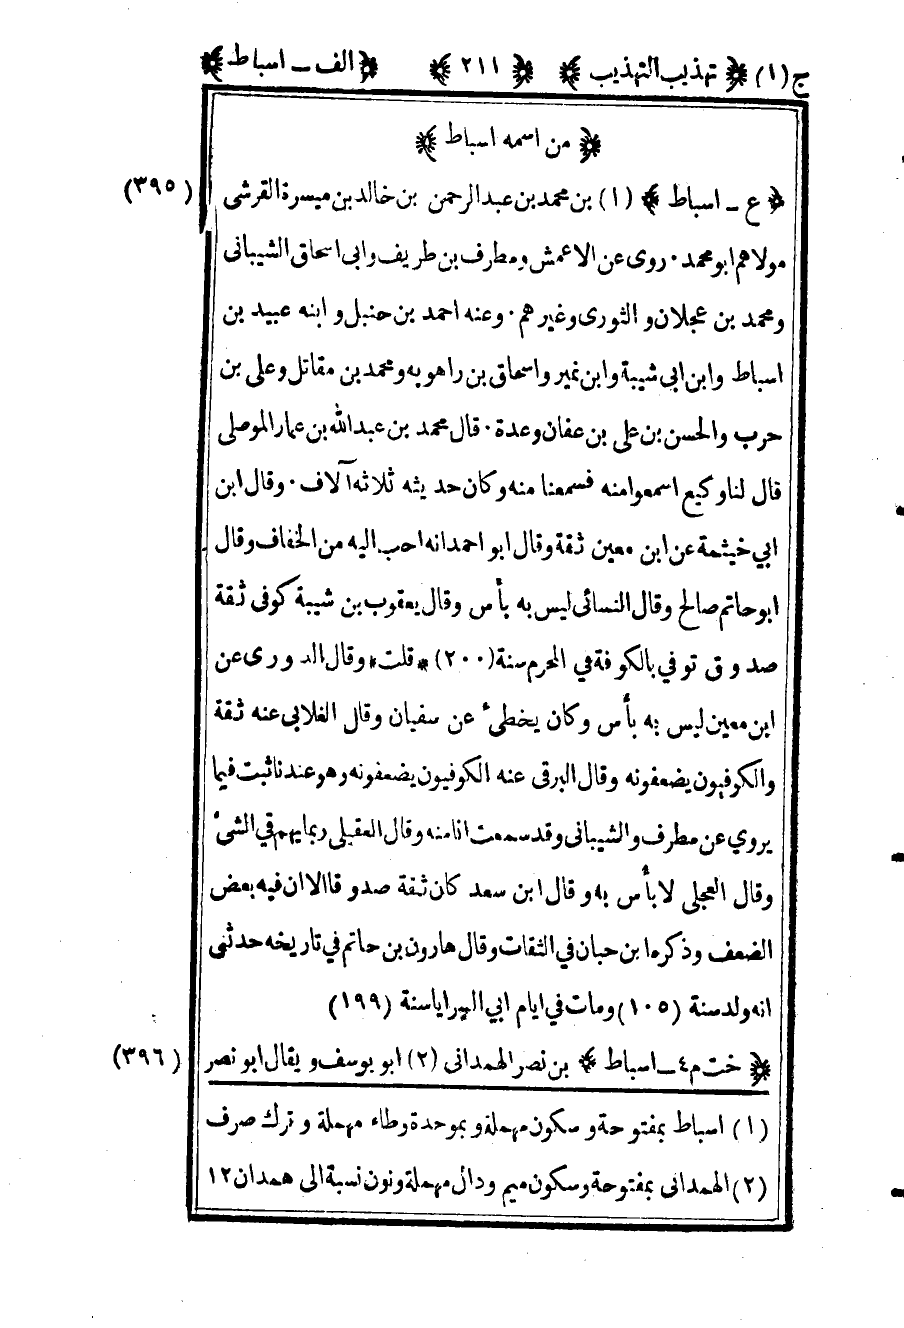 ج (١) ﴿ تهذيب التهذيب ﴾ ﴿ ٢١١ ﴾ ﴿ الف ــ اسباط ﴾
﴿ من اسمه اسباط ﴾
﴿ ع ــ اسباط ﴾ (١) بن محمد بن عبد الرحمن بن خالد بن ميسرة القرشى (٣٩٥)
مولاهم ابو محمد · روى عن الاعمش ومطرف بن طريف وابى اسحاق الشيبانى
ومحمد بن عجلان و الثورى وغيرهم · وعنه احمد بن حنبل و ابنه عبيد بن
اسباط وابن ابى شيبة وابن نمير واسحاق بن راهويه ومحمد بن مقاتل وعلى بن
حرب والحسن بن على بن عفان وعدة · قال محمد بن عبد الله بن عمار الموصلى
قال لنا وكيع اسمعوا منه فسمعنا منه وكان حديثه ثلاثه آلاف · وقال ابن
ابي خيثمة عن ابن معين ثقة وقال ابو احمد انه احب اليه من الخفاف وقال
ابو حاتم صالح وقال النسائى ليس به بأس وقال يعقوب بن شيبة كوفى ثقة
صدوق توفي بالكوفة في المحرم سنة (٢٠٠) * قلت * وقال الدورى عن
ابن معين ليس به بأس وكان يخطىء عن سفيان وقال الغلابى عنه ثقة
والكوفيون يضعفونه وقال البرقى عنه الكوفيون يضعفونه وهو عندنا ثبت فيما
يروي عن مطرف والشيبانى وقد سمعت انا منه وقال العقيلى ربما يهم في الشىء
وقال العجلى لا بأس به وقال ابن سعد كان ثقة صدوقا الا ان فيه بعض
الضعف وذكره ابن حبان في الثقات وقال هارون بن حاتم في تاريخه حدثنى
انه ولد سنة (١٠٥) ومات في ايام ابي السرايا سنة (١٩٩)
﴿ خت م ٤ ــ اسباط ﴾ بن نصر الهمدانى (٢) ابو يوسف و يقال ابو نصر (٣٩٦)
(١) اسباط بمفتوحة و سكون مهملة و بموحدة وطاء مهملة و ترك صرف
(٢) الهمدانى بمفتوحة وسكون ميم ودال مهملة ونون نسبة الى همدان ١٢